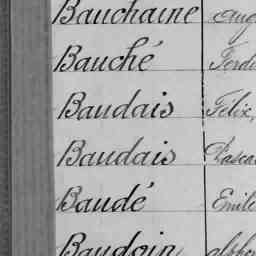 Bauchaine Aug
Bauché Ferdi
Baudais Félix,
Baudais Pasca
Baudé Emile
Baudoin alpho